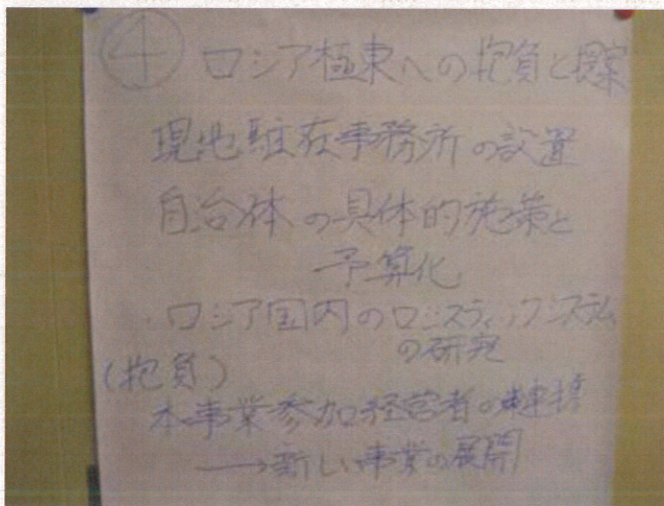 ④ ロシア極東への抱負と提案
現地駐在事務所の設置
自治体の具体的施策と
予算化
・ロシア国内のロジスティックシステム
の研究
(抱負)
本事業参加経営者の連携
→新しい事業の展開